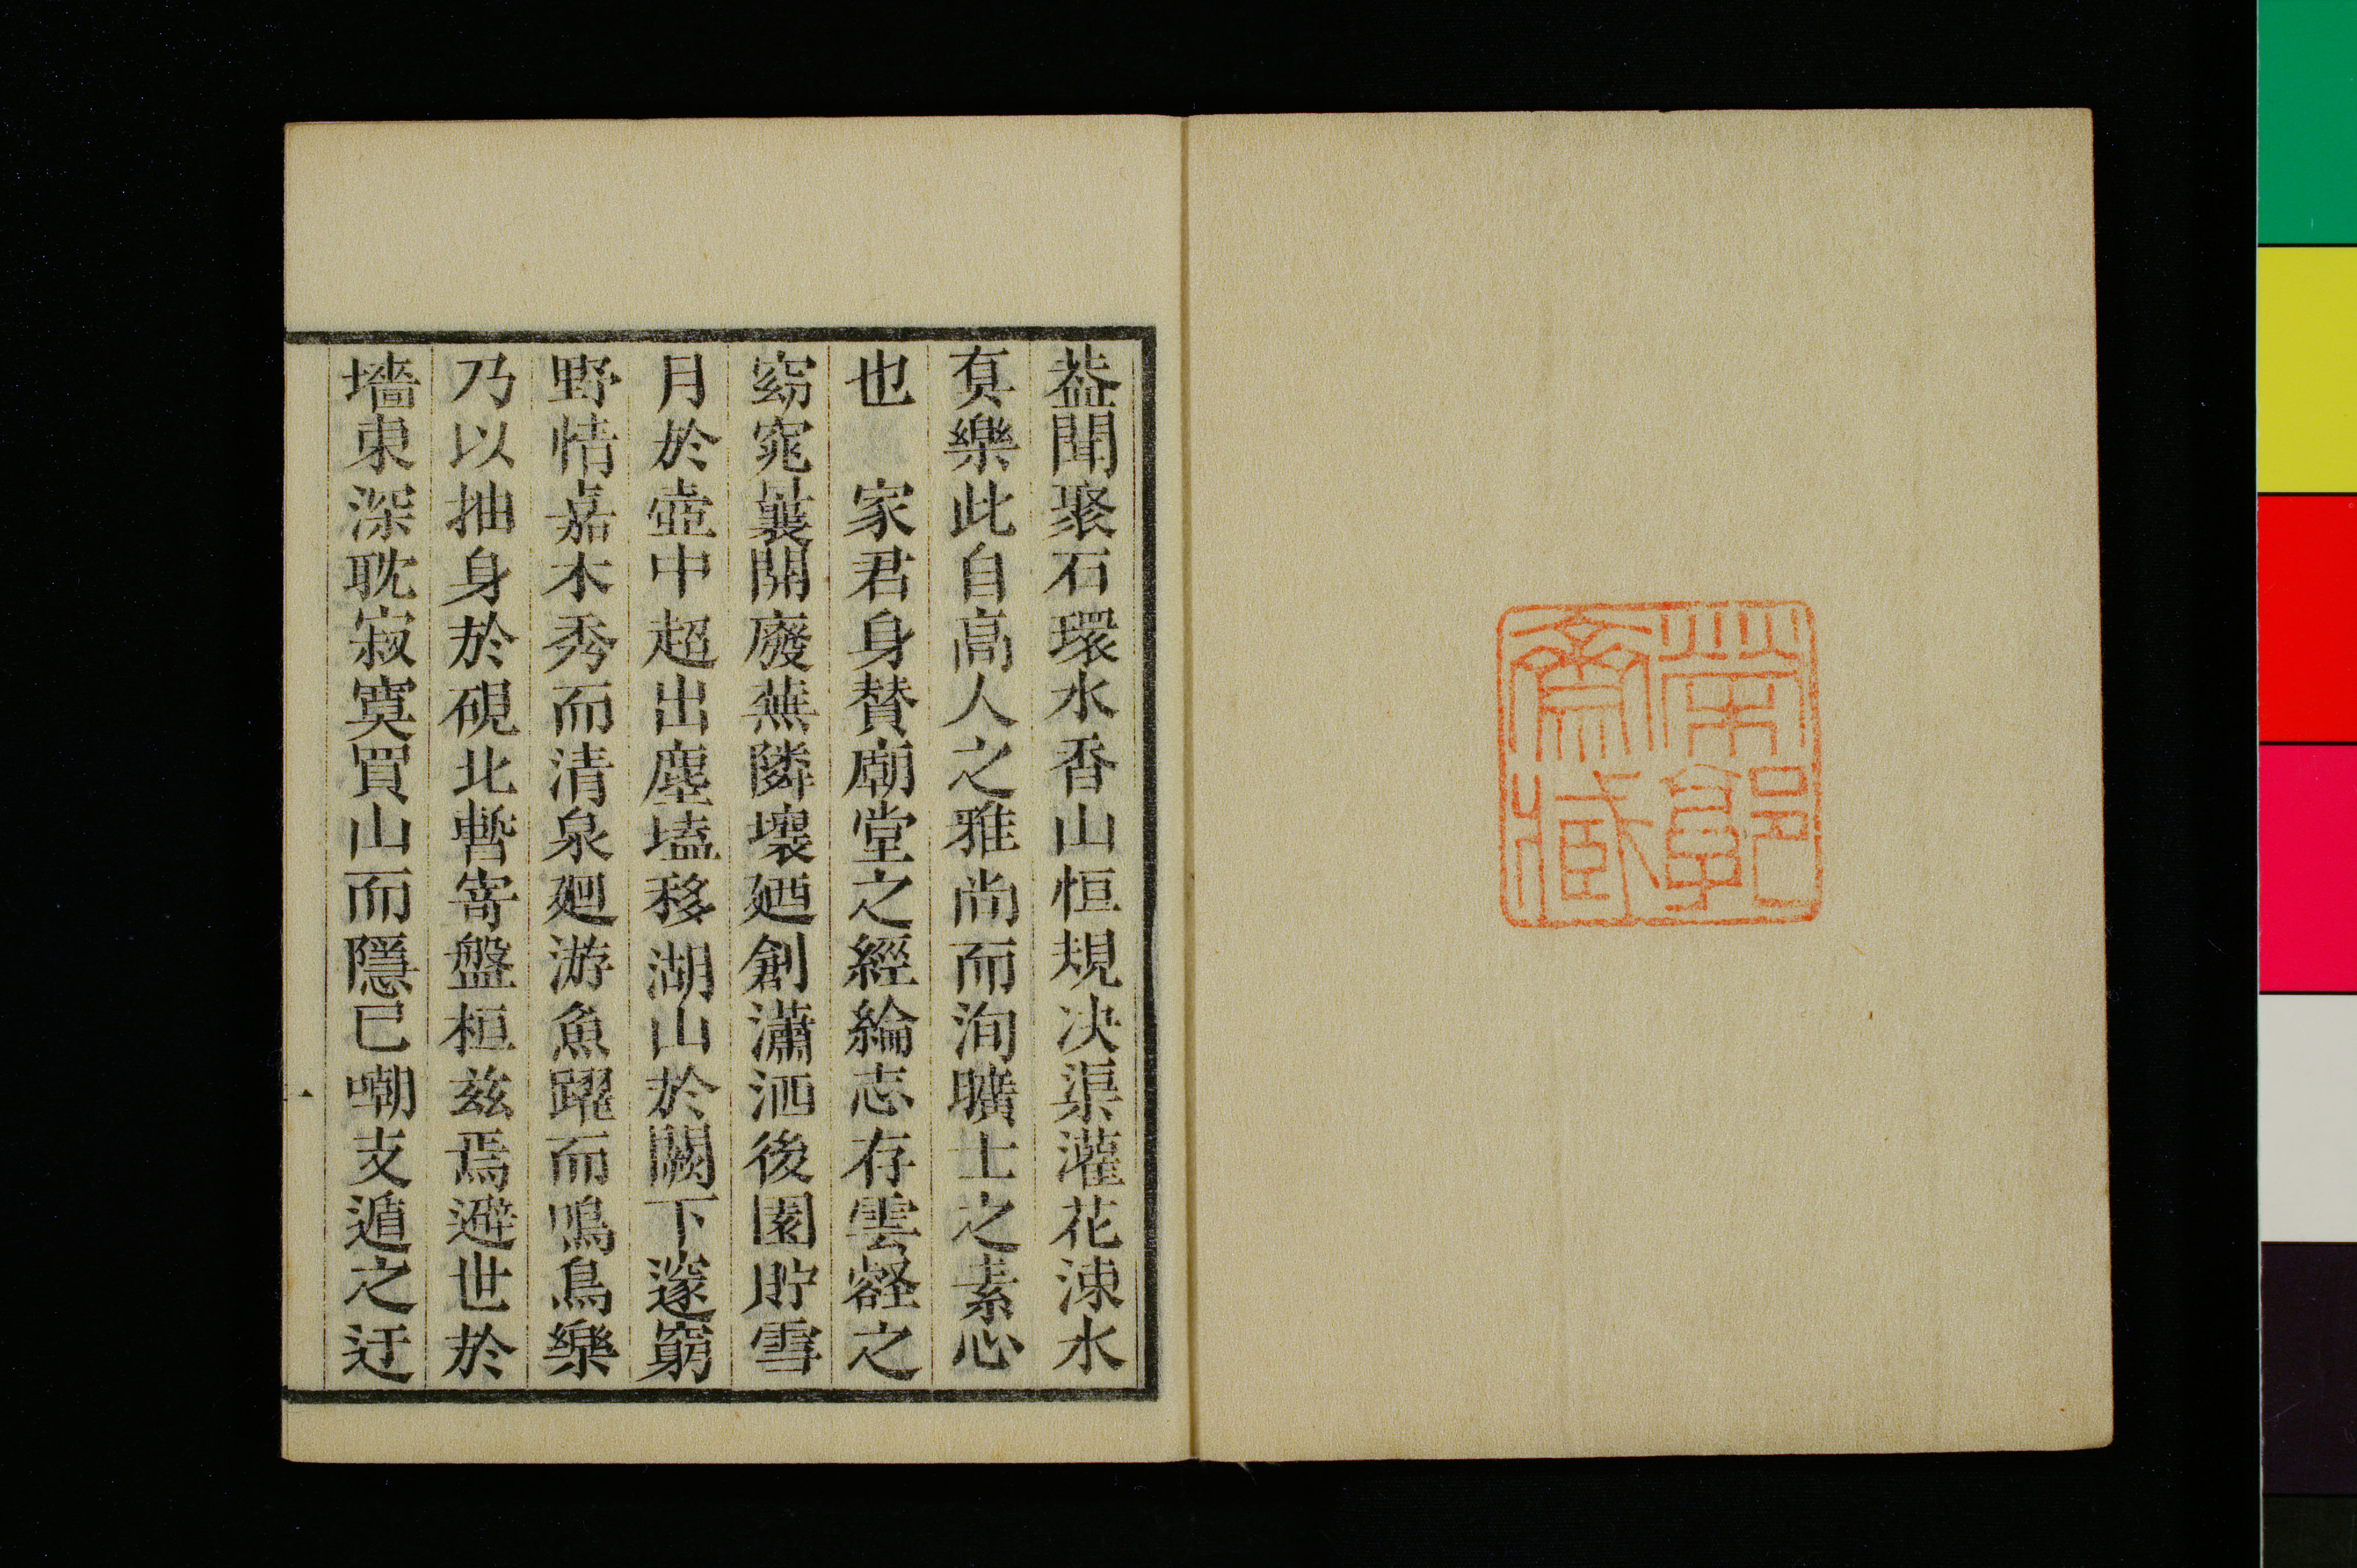 帶郭
齋藏
葢聞聚石環水香山恒規决渠灌花涑水
真樂此自高人之雅尚而洵曠士之素心
也　家君身賛廟堂之經綸志存雲壑之
窈窕曩開廢蕪隣壤廼創瀟洒後園貯雪
月於壺中超出塵壒移湖山於闕下邃窮
野情嘉木秀而清泉廻游魚躍而鳴鳥樂
乃以抽身於硯北暫寄盤桓兹焉避世於
墻東深耽寂寞買山而隱已嘲支遁之迂